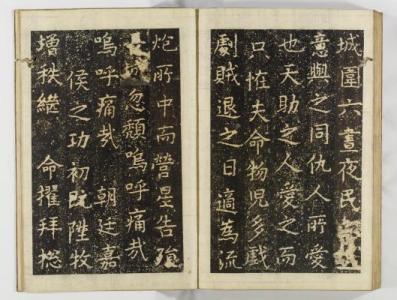 城圍六晝夜民
意與之同仇人所愛
也天助之人愛之而
只恠夫命物兒多戲
劇賊退之日適為流
炮所中而營星告殞
城忽頹嗚呼痛哉
嗚呼痛哉 朝廷嘉
侯之功初既陞牧
增秩繼 命擢拜摠